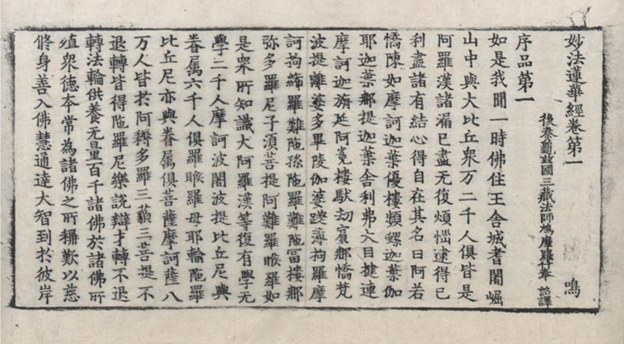 妙法蓮華經卷第一
鳴
後秦龜茲國三藏法師鳩摩羅什奉 詔譯
序品第一
如是我聞一時佛住王舍城耆闍崛
山中與大比丘衆万二千人俱皆是
阿羅漢諸漏已盡无復煩惱逮得已
利盡諸有結心得自在其名曰阿若
憍陳如摩訶迦葉優樓頻螺迦葉伽
耶迦葉那提迦葉舍利弗大目揵連
摩訶迦旃延阿㝹樓馱劫賓那憍梵
波提離婆多畢陵伽婆蹉薄拘羅摩
訶拘絺羅難陁孫陁羅難陁富樓那
弥多羅尼子須菩提阿難羅睺羅如
是衆所知識大阿羅漢等復有學无
學二千人摩訶波闍波提比丘尼與
眷属六千人俱羅睺羅母耶輸陁羅
比丘尼亦與眷属俱菩薩摩訶薩八
万人皆於阿耨多羅三藐三菩提不
退轉皆得陁羅尼樂說辯才轉不退
轉法輪供養无量百千諸佛於諸佛所
殖衆德本常為諸佛之所稱歎以慈
修身善入佛慧通達大智到於彼岸